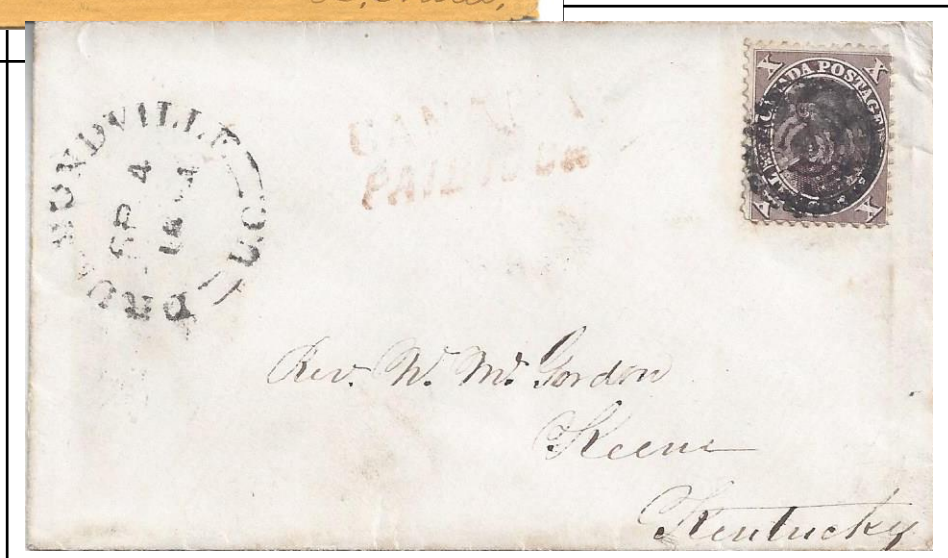 DRUMMONDVILLE
AP 4
CANADA
PAID 10 Cts
CANADA POSTAGE
X X
X X
Rev. W. Mc Gordon
Keene
Kentucky